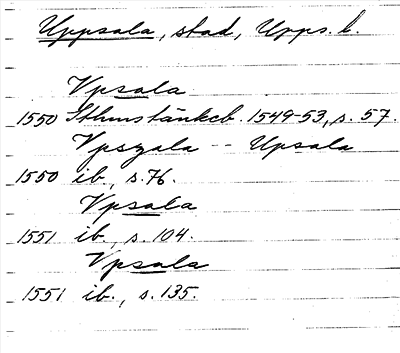 Uppsala, stad, Upps. l.
Vpsala
1550 Sthms tänkeb. 1549-53, s. 57.
Vpszala -- Upsala
1550 ib., s. 76.
Vpsala
1551 ib., s. 104.
Vpsala
1551 ib., s. 135.